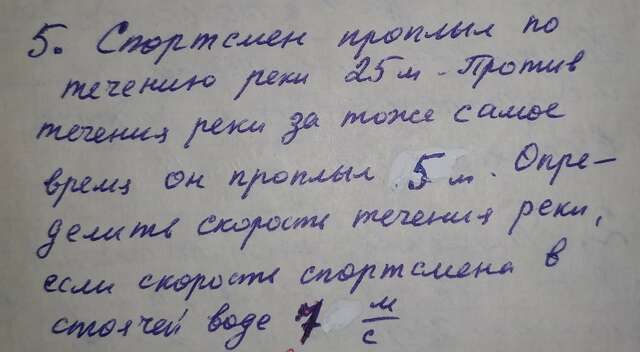 5. Спортсмен проплыл по
течению реки 25 м. Против
течения реки за тоже самое
время он проплыл 5 м. Опре-
делить скорость течения реки,
если скорость спортсмена в
стоячей воде 7 м/с